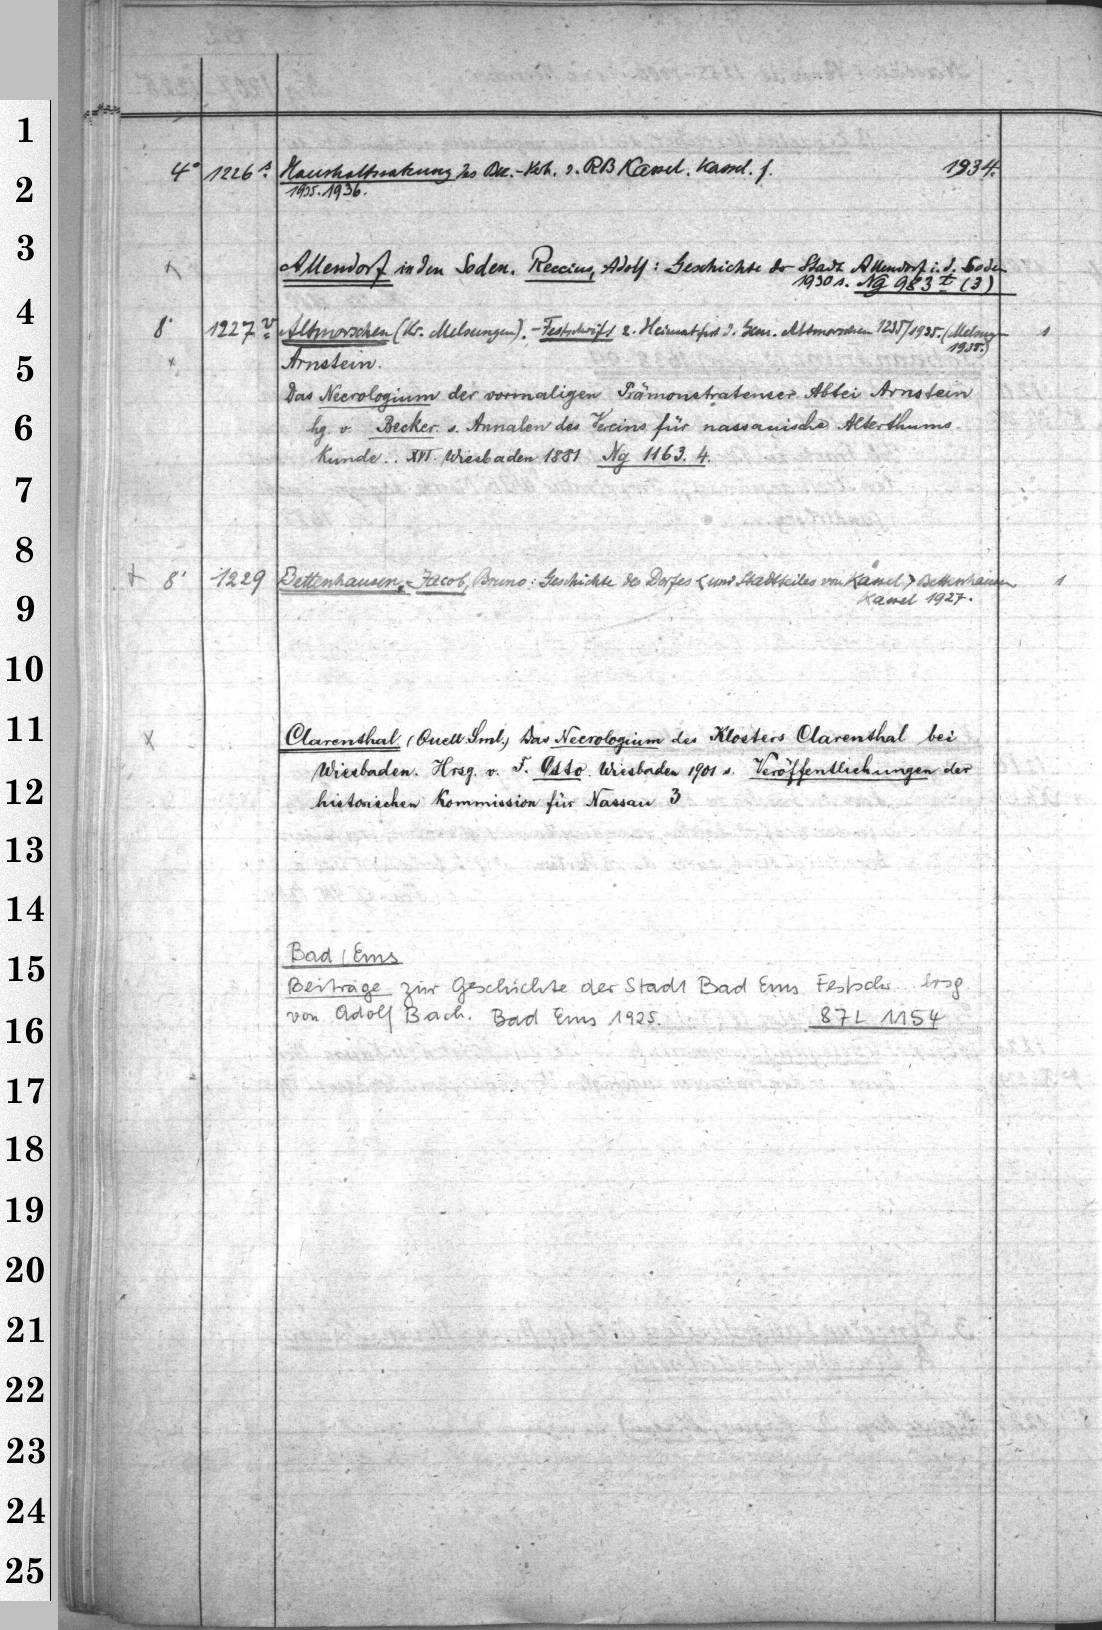 1
2
3
4
5
6
7
8
9
10
11
12
13
14
15
16
17
18
19
20
21
22
23
24
25
4° 1226 s Haushaltssatzung des Bez.-Verb. d. RB Kassel. Kassel. f. 1934.
1935. 1936.
x Allendorf in den Soden. Reccius, Adolf: Geschichte der Stadt Allendorf i. d. Soden
1930 s. Ng 983 t (3)
8° 1227 v Altmorschen (Kr. Melsungen). - Festschrift z. Heimatfest d. Gem. Altmorschen 1235/1935. (Melsungen 1
1935.)
x Arnstein.
Das Necrologium der vormaligen Prämonstratenser Abtei Arnstein
hg. v. Becker. s. Annalen des Vereins für nassauische Alterthums
Kunde.. XVI. Wiesbaden 1881 Ng 1163. 4.
+ 8° 1229 Bettenhausen. - Jacob, Bruno: Geschichte des Dorfes < und Stadtteiles von Kassel > Bettenhausen 1
Kassel 1927.
x Clarenthal (Quell. Sml.) Das Necrologium des Klosters Clarenthal bei
Wiesbaden. Hrsg. v. F. Otto. Wiesbaden 1901 s. Veröffentlichungen der
historischen Kommission für Nassau 3
Bad / Ems
Beiträge zur Geschichte der Stadt Bad Ems Festschr. hrsg.
von Adolf Bach. Bad Ems 1925. 87 L 1154